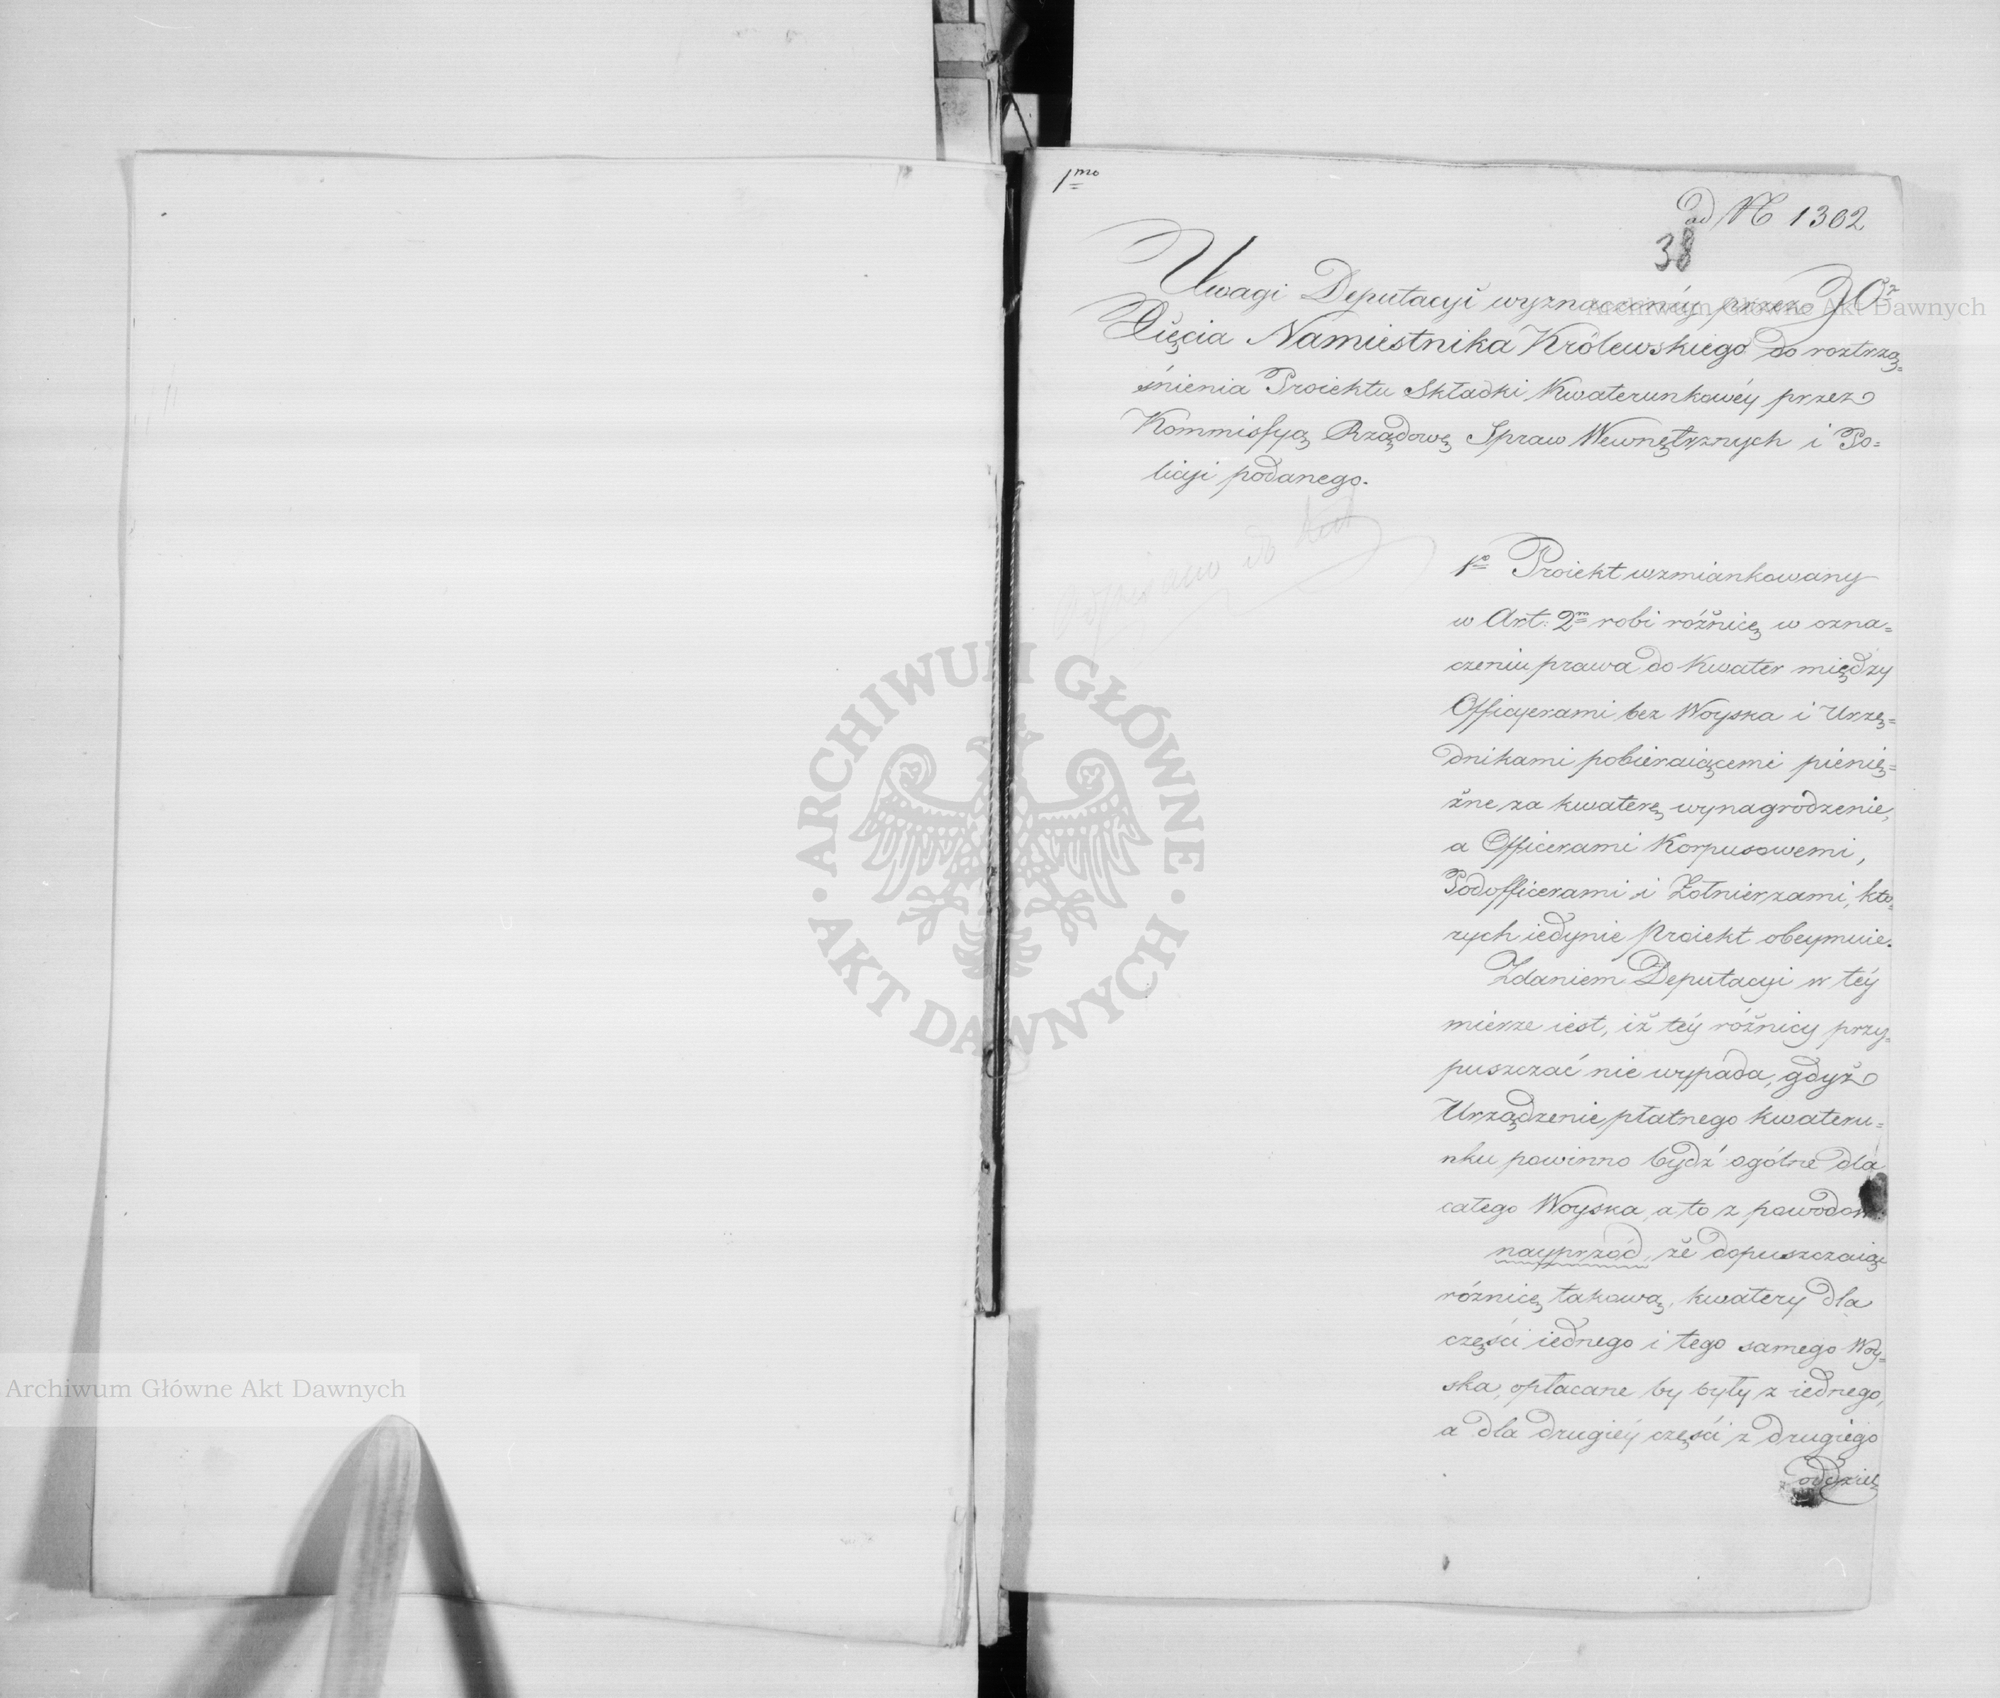 1mo
ad N 1302
38
Uwagi Deputacyi wyznaczonéy przez JO.
Xięcia Namiestnika Królewskiego do roztrzą=
śnienia Proiektu Składki Kwaterunkowéy przez
Kommissyą Rządową Spraw Wewnętrznych i Po=
licyi podanego.
do
1o Proiekt wzmiankowany
w Art: 2m robi różnicę w ozna=
czeniu prawa do Kwater między
Officyerami bez Woyska i Urzę=
dnikami pobieraiącemi pienię=
żne za kwaterę wynagrodzenie,
a Officerami Korpusowemi,
Podofficerami i Żołnierzami, któ=
rych iedynie Proiekt obeymuie.
Zdaniem Deputacyi w téy
mierze iest, iż téy różnicy przy=
puszczać nie wypada, gdyż
Urządzenie płatnego kwateru=
nku powinno bydź ogólne dla
całego Woyska, a to z powodow
nayprzód, że dopuszczaiąc
różnicę takową, kwatery dla
części iednego i tego samego Woy=
ska, opłacane by były z iednego,
a dla drugiéy części z drugiego
oddziel
Archiwum Główne Akt Dawnych
Archiwum Główne Akt Dawnych
ARCHIWUM GŁÓWNE
AKT DAWNYCH